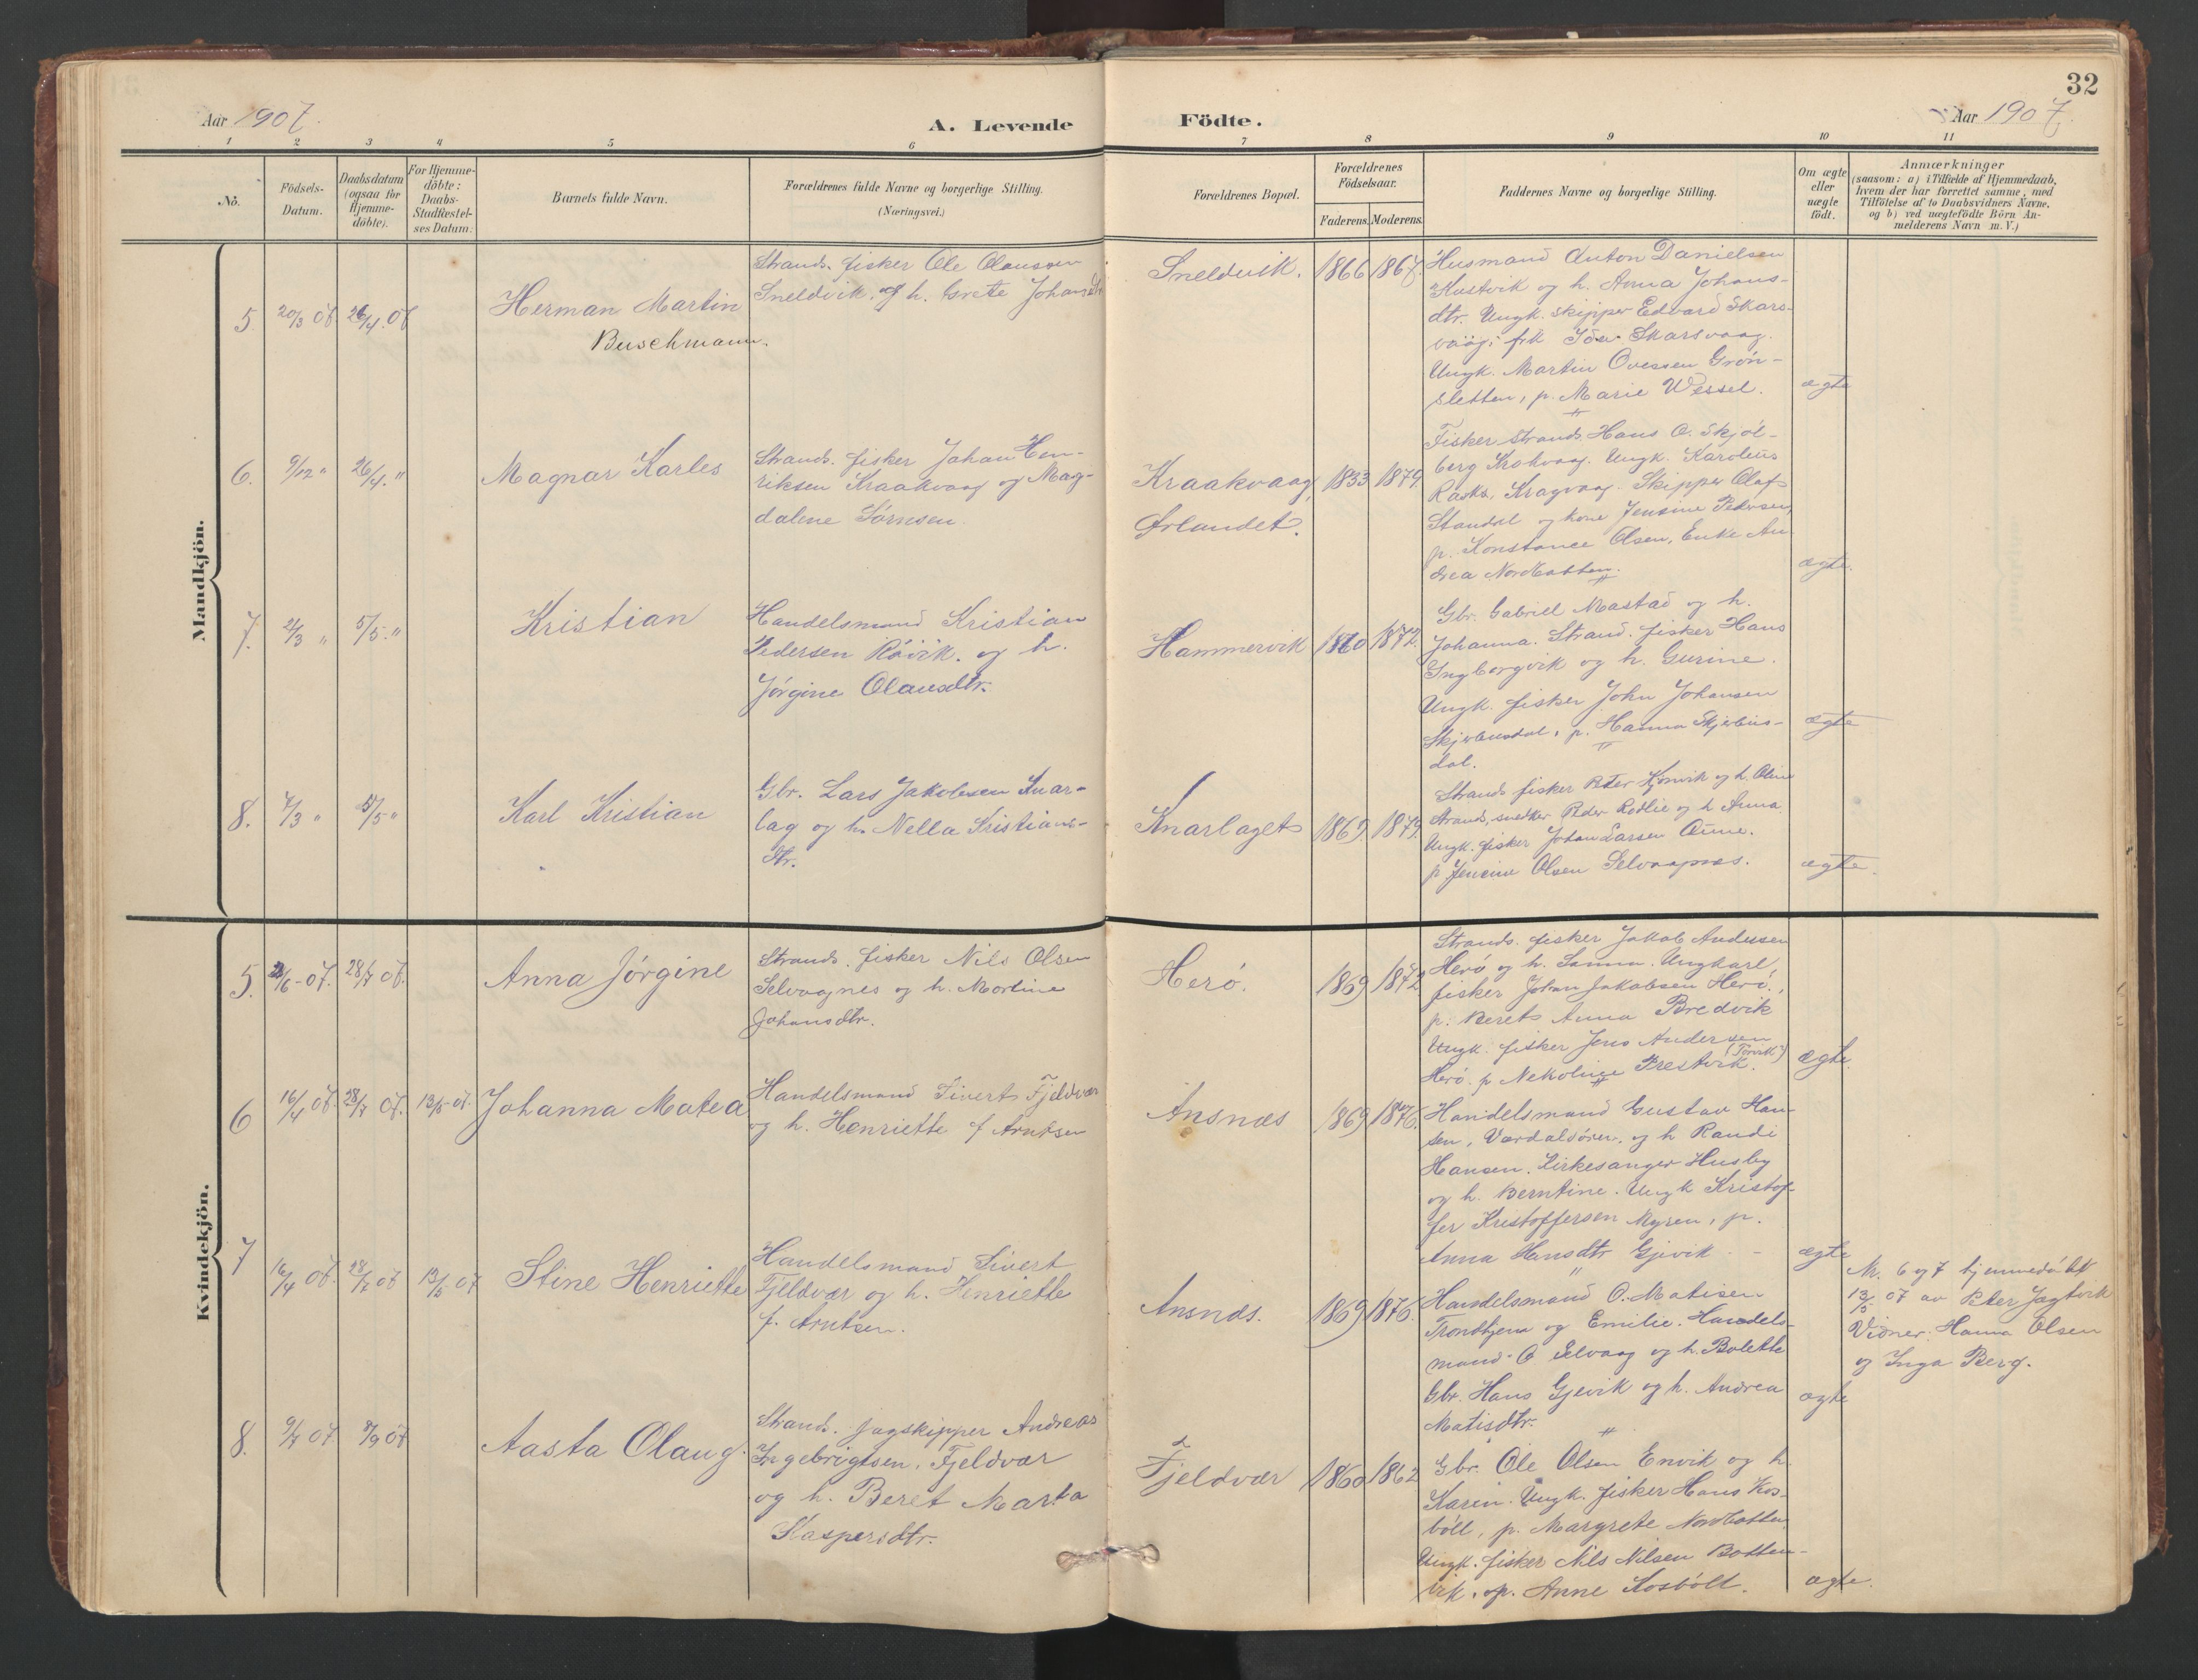 32
Aar 1907.
A. Levende
Födte.
Aar 1907.
1 2 3 4 5 6 7 8 9 10 11
No.
Födsels-
Datum.
Daabsdatum
(ogsaa for
Hjemme-
döbte).
For Hjemme-
döbte:
Daabs-
Stadfæstel-
ses Datum.
Barnets fulde Navn.
Forældrenes fulde Navne og borgerlige Stilling.
(Næringsvei.)
Forældrenes Bopæl.
Forældrenes
Födselsaar.
Faderens.
Moderens.
Faddernes Navne og borgerlige Stilling.
Om ægte
eller
uægte
födt.
Anmærkninger
(saasom: a) i Tilfælde af Hjemmedaab,
hvem der har forrettet samme, med
Tilföielse af to Daabsvidners Navne,
og b) ved uægtefödte Börn An-
melderens Navn m. V.)
Mandkjön.
5. 20/3 07 26/4. 07
Herman Martin
Buschmann.
Strands. fisker Ole Olaussen
Sneldvik, og h. Grete Johansdtr
Sneldvik. 1866 1867.
Husmand Anton Danielsen
Kustvik og h. Anna Johans-
dtr. Ungk. skipper Edvard Skars-
vaag, frk Ida Skarsvaag.
Ungk. Martin Ovessen Grön-
sletten, p. Marie Wessel.
ægte
6. 9/12 " 26/4. "
Magnar Karles
Strands. fisker Johan Hen-
riksen Kraakvaag og Mag-
dalene Sörnsen.
Kraakvaag, 1833 1879
Ørlandet.
Fisker strands. Hans O. Skjöl-
berg Krakvaag. Ungk. Karolius
Kragvaag. Skipper Olaf
Standal og kone Jensine Pedersen,
p. Konstance Olsen, Enke An-
drea Nordbotten.
ægte.
7. 2/3 " 5/5. "
Kristian
Handelsmand Kristian
Pedersen Röivik. og h.
Jörgine Olausdtr.
Hammervik 1870 1872.
Gbr. Gabriel Mastad og h.
Johanna. Strand. fisker Hans
Ingborgvik og h. Gurine.
Ungk. fisker John Johansen
Skjærbusdal, p. Hanna Skjærbus-
dal.
ægte
8. 7/3 " 5/5 "
Karl Kristian
Gbr. Lars Jakobsen Knar-
lag og h. Nella Kristians-
dtr.
Knarlaget 1869. 1879.
Strands fisker Peter Hjönvik og h. Oline
Strand, snedker Peder Rödlie og h Anna
Ungk. fisker Johan Larsen Aune.
p Jensine Olsen Selvaagnæs.
ægte.
Kvindekjön.
5. 2/6 - 07. 28/7 07.
Anna Jörgine
Strands. fisker Nils Olsen
Selvagnes og h. Mortine
Johansdtr.
Herö. 1869 1872
Strands. fisker Jakob Anderssen
Herö og h. Sanna. Ungkarl
fisker Johan Jakobsen Herö,
p. Beret Anna Bredvik
Ungk. fisker Jens Andersen
Herö. p Nekoline Prestvik. (Torvik)
ægte.
6 16/4 07. 28/7 07. 13/5 07.
Johanna Matea
Handelsmand Sivert Fjeldvær
og h. Henriette f Arntsen
Ansnæs 1869 1876.
Handelsmand Gustav Han-
sen, Værdalsören, og h Randi
Hansen. Kirkesanger Husby
og h. Berntine. Ungk Kristof-
fer Kristoffersen Myren, p.
Anna Hansdtr Gjevik.
ægte
7 16/4 07. 28/7 07 13/5 07
Stine Henriette
Handelsmand Sivert
Fjeldvær og h. Henriette
f. Arntsen.
Ansnæs. 1869 1876.
Handelsmand O. Matisen
Trondhjem og Emilie. Handels-
mand O Selvaag og h. Bolette
Gbr. Hans Gjevik og h. Andrea
Matisdtr.
ægte
Nr. 6 og 7 hjemmedöbt
13/5 07 av Peter Jægtvik
Vidner: Hanna Olsen
og Inga Berg.
8. 9/7 07 8/9 07
Aasta Olaug.
Strands. jagskipper Andreas
Ingebrigtsen, Fjeldvær
og h. Beret Marta
Kaspersdtr.
Fjeldvær 1860 1862
Gbr. Ole Olsen Envik og h.
Karen. Ungk. fisker Hans Kos-
böll, p. Margrete Nordbotten,
Ungk. fisker Nils Nilsen Botten-
vik, og p. Anne Kosböll.
ægte.